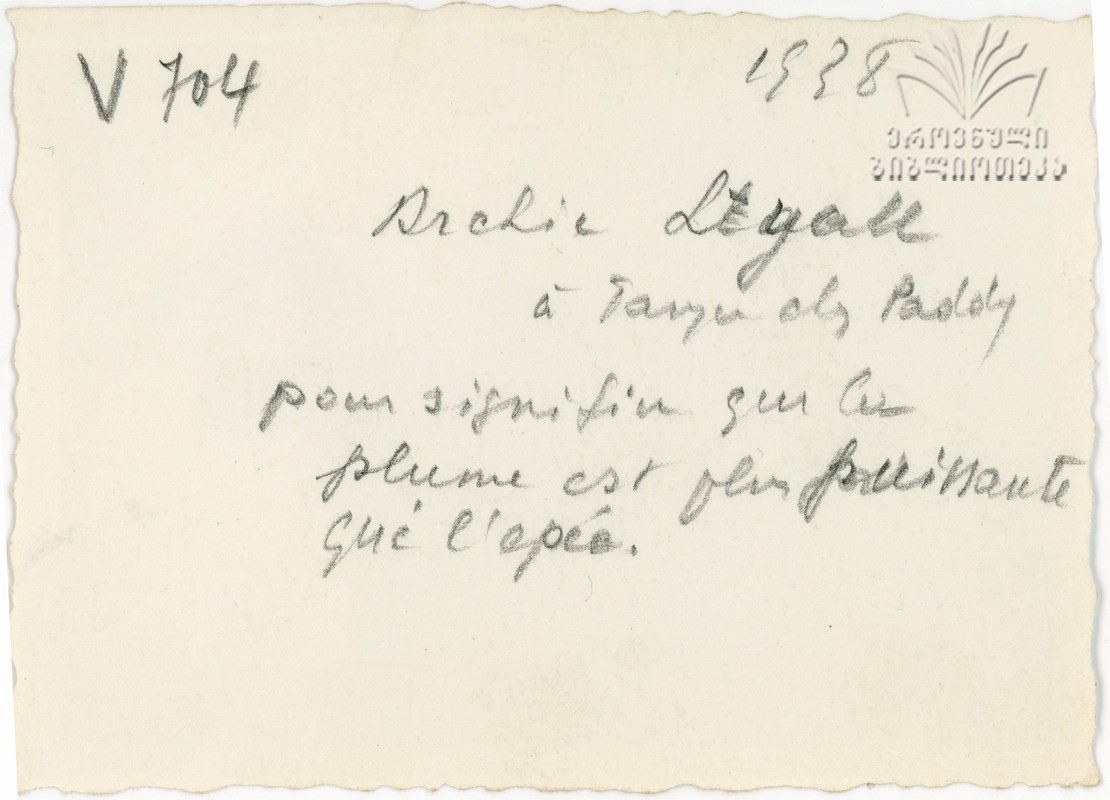 V 704
1938
ეროვნული
ბიბლიოთეკა
Archie Legall
à Tanger chez Paddy
pour signifier que la
plume est plus puissante
que l'epée.